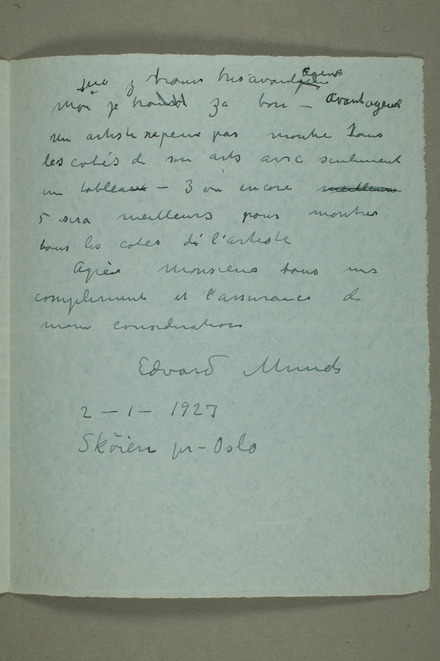 que y trouve tres avantageux
Moi je trouve ça bon — avantageux
Un artiste ne peux pas montre tous
les cotés de son arts avec seulement
un tableaux — 3 ou encore meilleurs
5 sera meilleurs pour montrer
tous les cotes de l'artiste
Agrèe Monsieur tous mes
complements et l'assurance de
mem consideration
Edvard Munch
2 – 1 – 1927
Sköien pr – Oslo